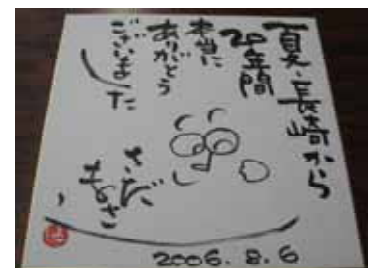 夏・長崎から
20年間
本当に
ありがとう
ございました
さだ
まさし
2006.8.6